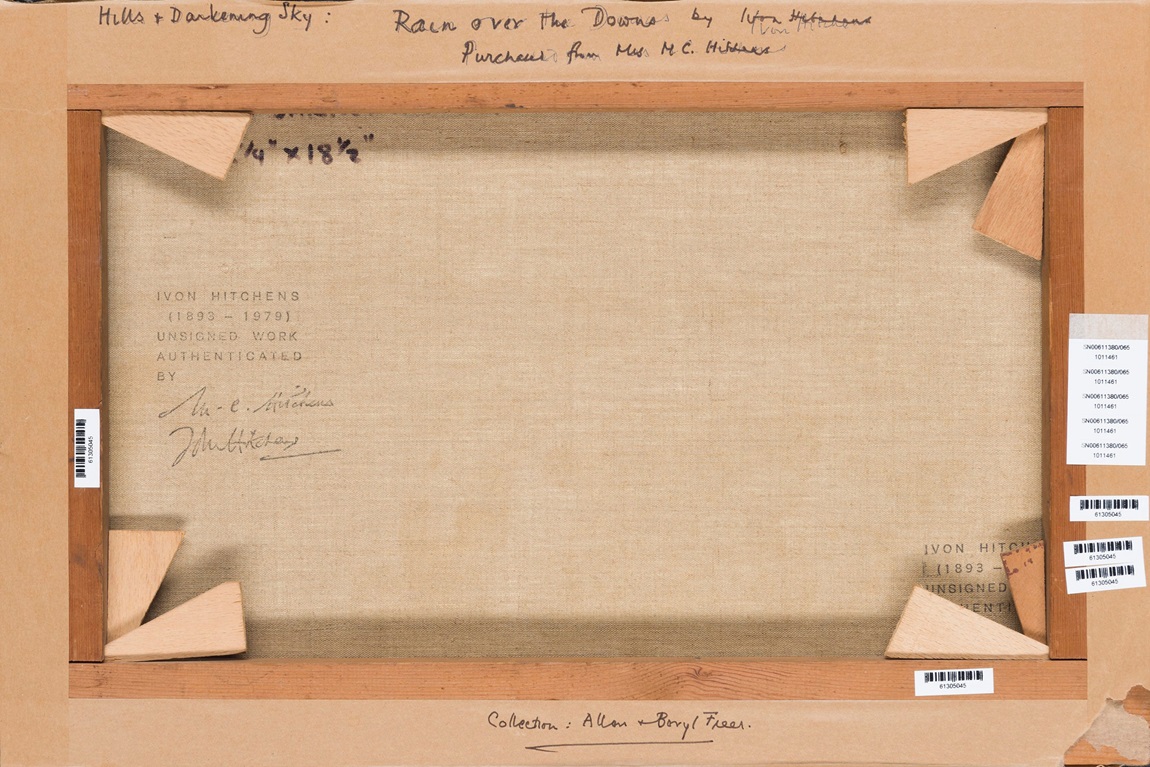 Hills & Darkening Sky :
Rain over the Downs by Ivon Hitchens
Ivon Hitchens
Purchased from Mrs M.C. Hitchens
1/4" x 18 1/2"
IVON HITCHENS
(1893 – 1979)
UNSIGNED WORK
AUTHENTICATED
BY
M. C. Hitchens
John Hitchens
61305045
SN00611380/065
1011461
SN00611380/065
1011461
SN00611380/065
1011461
SN00611380/065
1011461
SN00611380/065
1011461
61305045
61305045
61305045
IVON HITCHEN
(1893 –
UNSIGNED
ENTI
61305045
Collection : Allan & Beryl Freer.